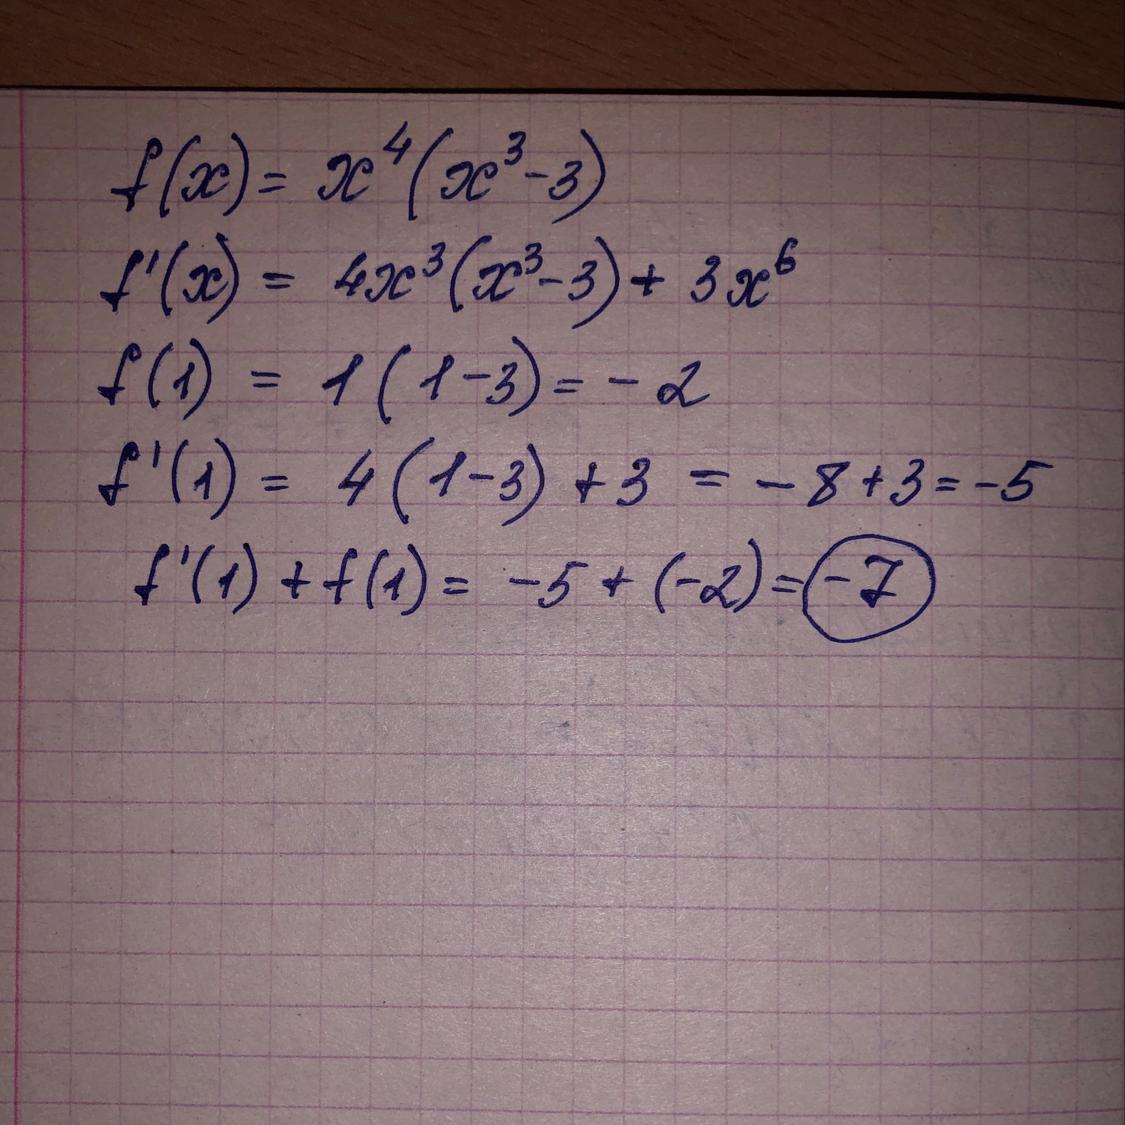 f(x) = x⁴(x³-3)
f'(x) = 4x³(x³-3) + 3x⁶
f(1) = 1(1-3) = -2
f'(1) = 4(1-3) + 3 = -8+3 = -5
f'(1) + f(1) = -5 + (-2) = -7